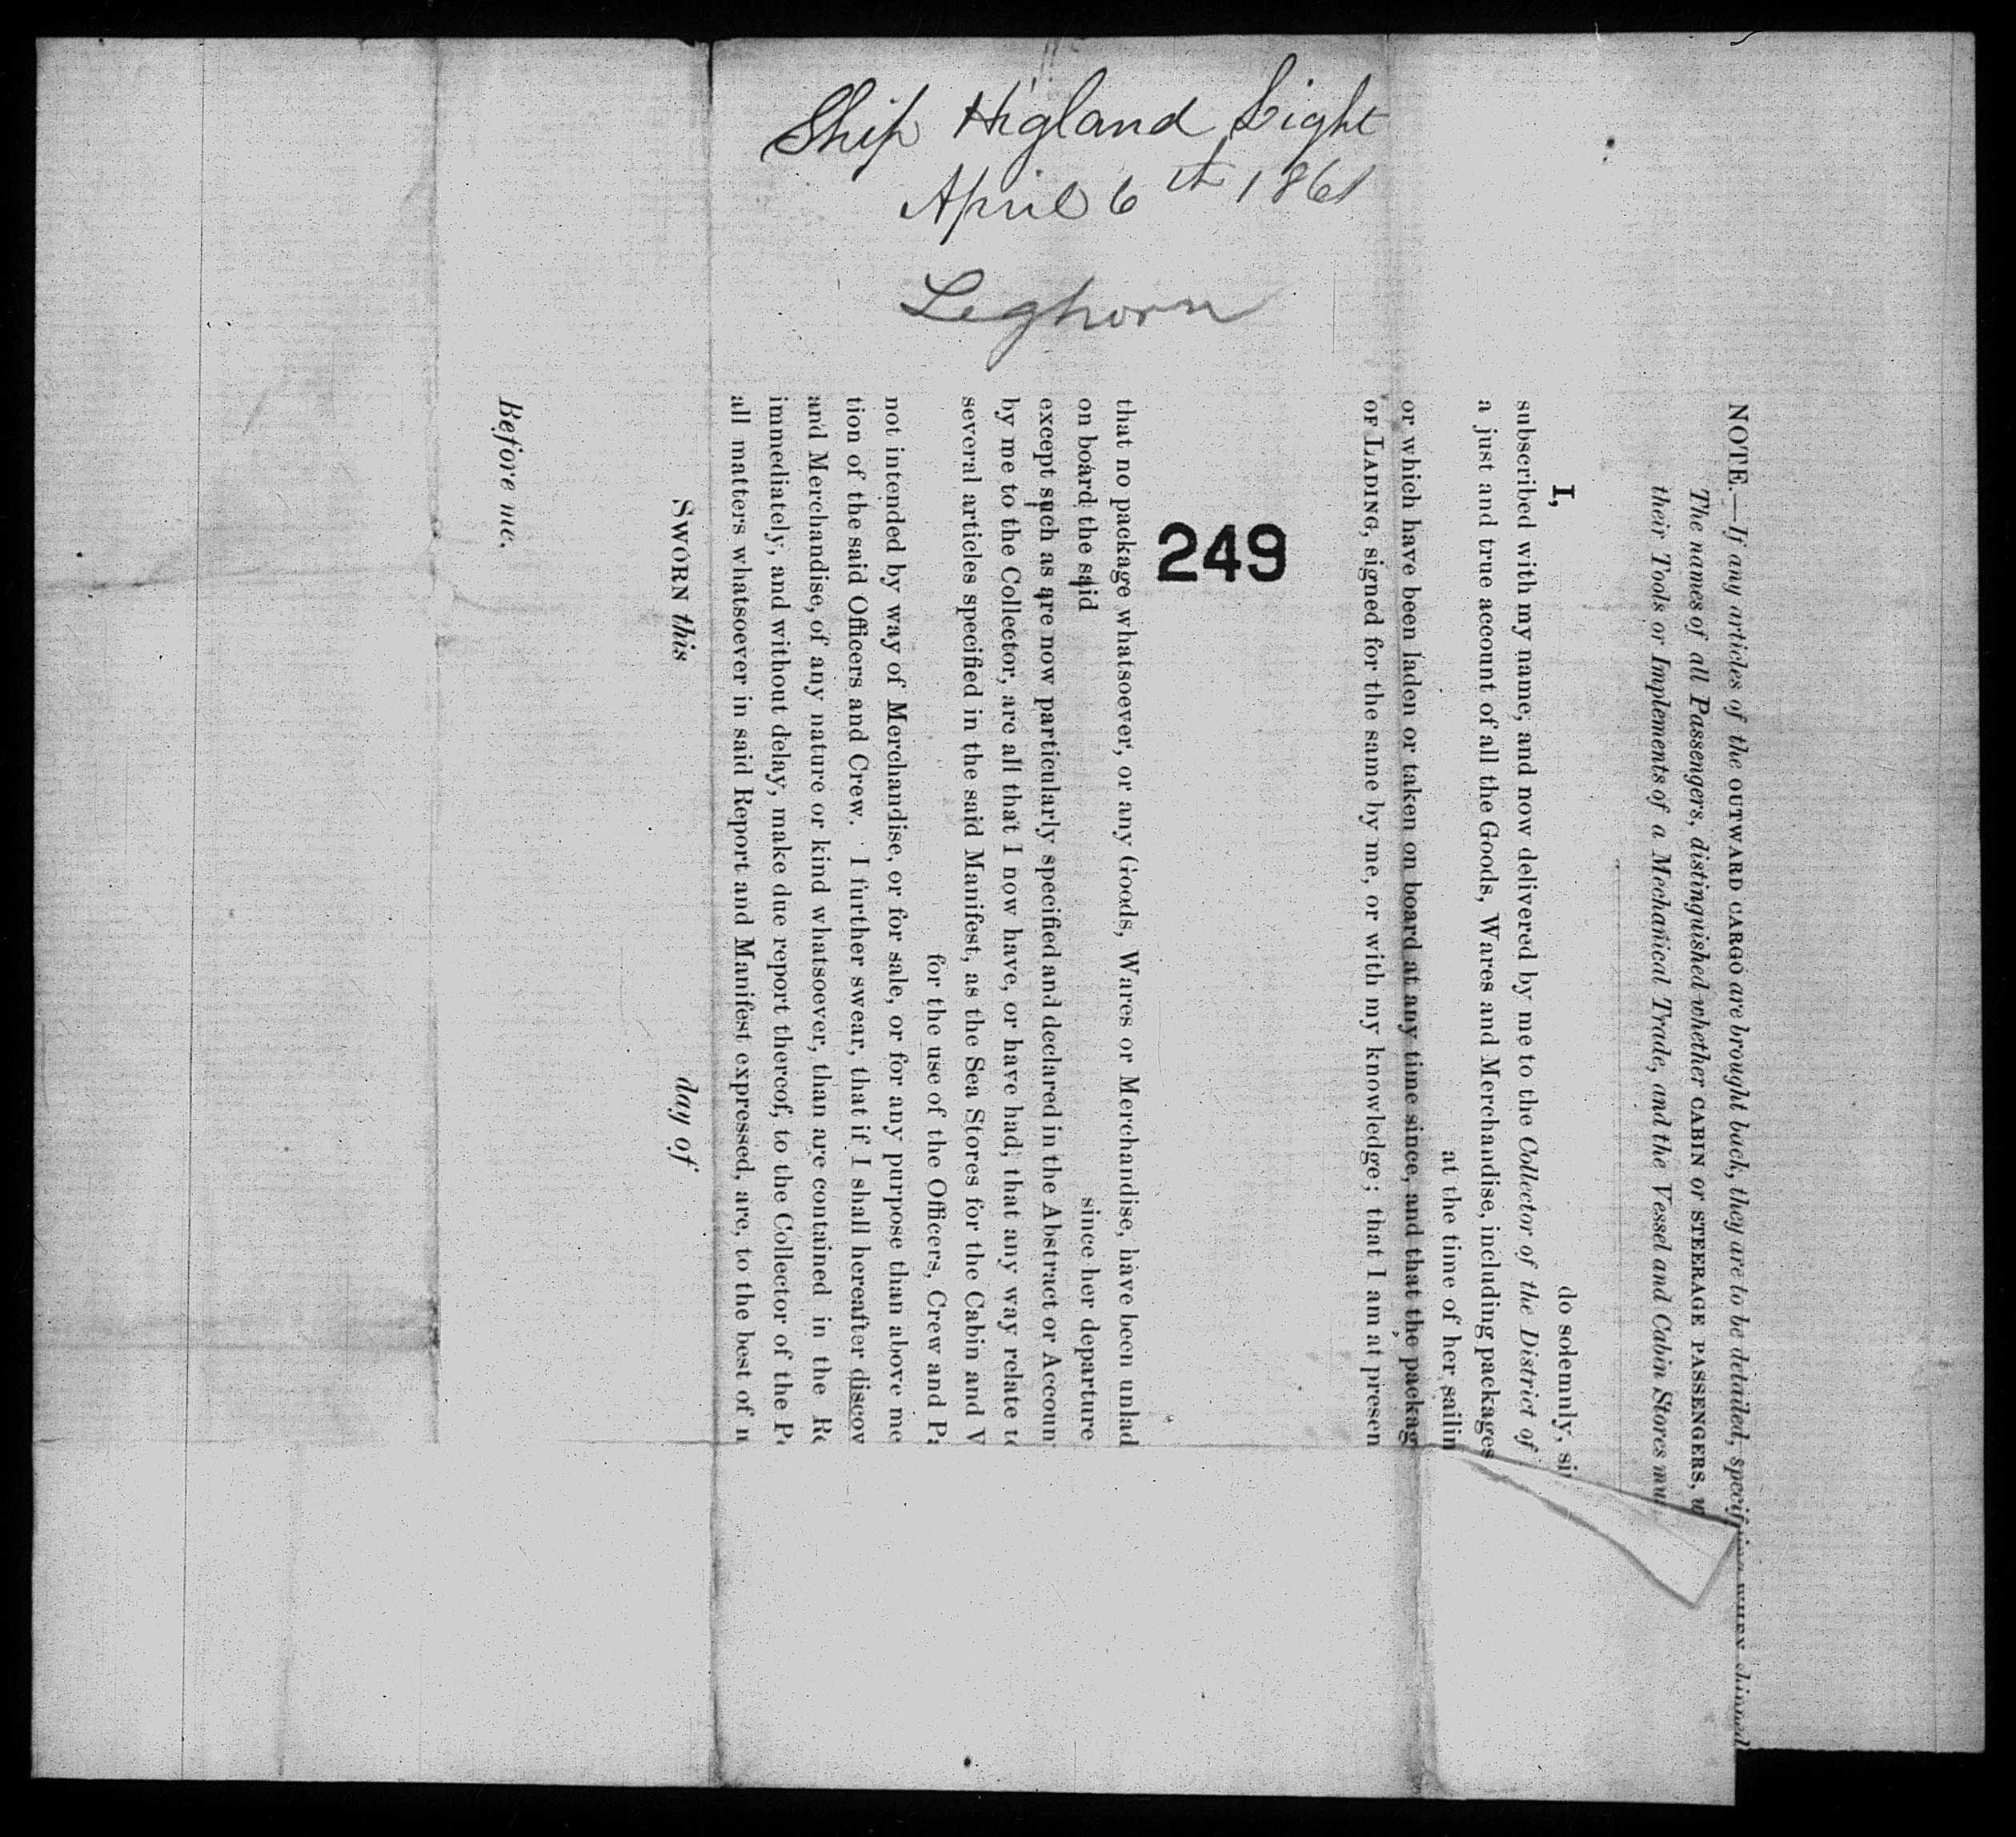 Ship Higland Light
April 6th 1861
Leghorn
249
NOTE.—If any articles of the OUTWARD CARGO are brought back, they are to be detailed, specifying WHEN shipped
The names of all Passengers, distinguished whether CABIN or STEERAGE PASSENGERS,
their Tools or Implements of a Mechanical Trade, and the Vessel and Cabin Stores
I,
do solemnly,
subscribed with my name, and now delivered by me to the Collector of the District of
a just and true account of all the Goods, Wares and Merchandise, including packages
at the time of her sailin
or which have been laden or taken on board at any time since, and that the packag
OF LADING, signed for the same by me, or with my knowledge; that I am at presen
that no package whatsoever, or any Goods, Wares or Merchandise, have been unlad
on board the said since her departure
except such as are now particularly specified and declared in the Abstract or Accoun
by me to the Collector, are all that I now have, or have had; that any way relate t
several articles specified in the said Manifest, as the Sea Stores for the Cabin and V
for the use of the Officers, Crew and Pa
not intended by way of Merchandise, or for sale, or for any purpose than above me
tion of the said Officers and Crew. I further swear, that if I shall hereafter discov
and Merchandise, of any nature or kind whatsoever, than are contained in the Re
immediately, and without delay, make due report thereof, to the Collector of the Po
all matters whatsoever in said Report and Manifest expressed, are, to the best of m
SWORN this day of
Before me,